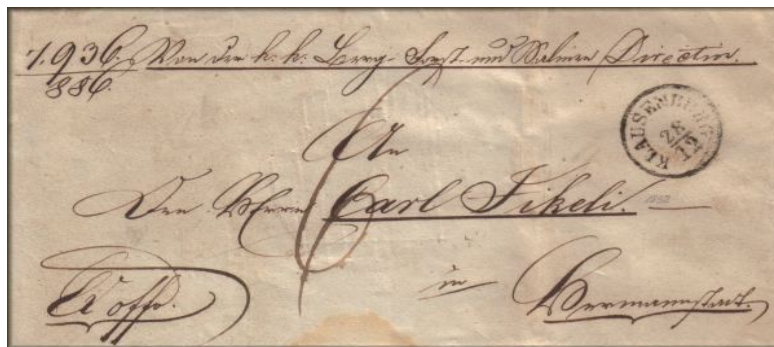 7.936. Von der k. k. Berg- Forst- und Salinen Direction.
886.
KLAUSENBURG
28/12
6
An
Den Herrn Carl Fikeli.
in
Hermannstadt.